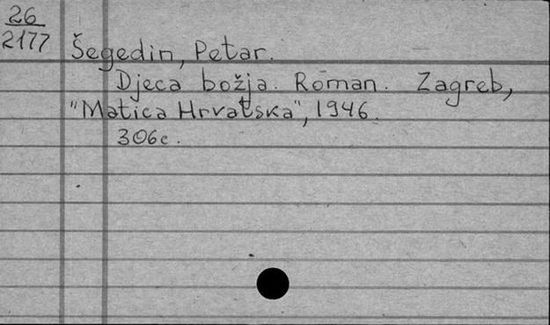 26
2177
Šegedin, Petar.
Djeca božja. Roman. Zagreb,
"Matica Hrvatska", 1946.
306c.